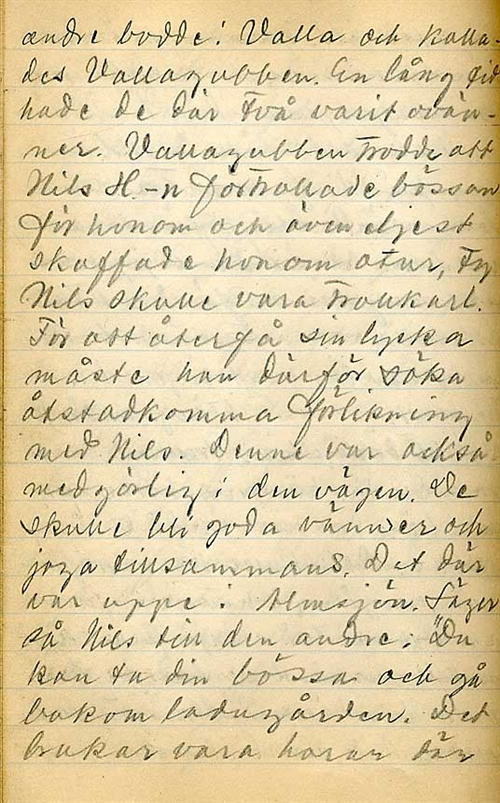 andre bodde i Valla och kalla-
des Vallagubben. En lång tid
hade de där två varit ovän-
ner. Vallagubben trodde att
Nils H.-n förtrollade bössan
för honom och även eljest
skaffade honom otur, ty
Nils skulle vara trollkarl.
För att återfå sin lycka
måste han därför söka
åstadkomma förlikning
med Nils. Denne var också
medgörlig i den vägen. De
skulle bli goda vänner och
jaga tillsammans. Det där
var uppe i Almsjön. Säger
så Nils till den andre: "Du
kan ta din bössa och gå
bakom ladugården. Det
brukar vara harar där